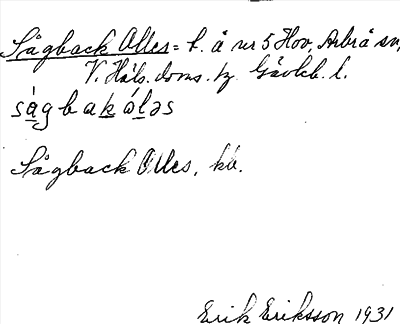 Sågback Olles = t. å nr 5 Hov, Arbrå sn,
V. Häls. doms. tg. Gävleb. l.
ságbakóləs
Sågback Olles, kb.
Erik Eriksson 1931